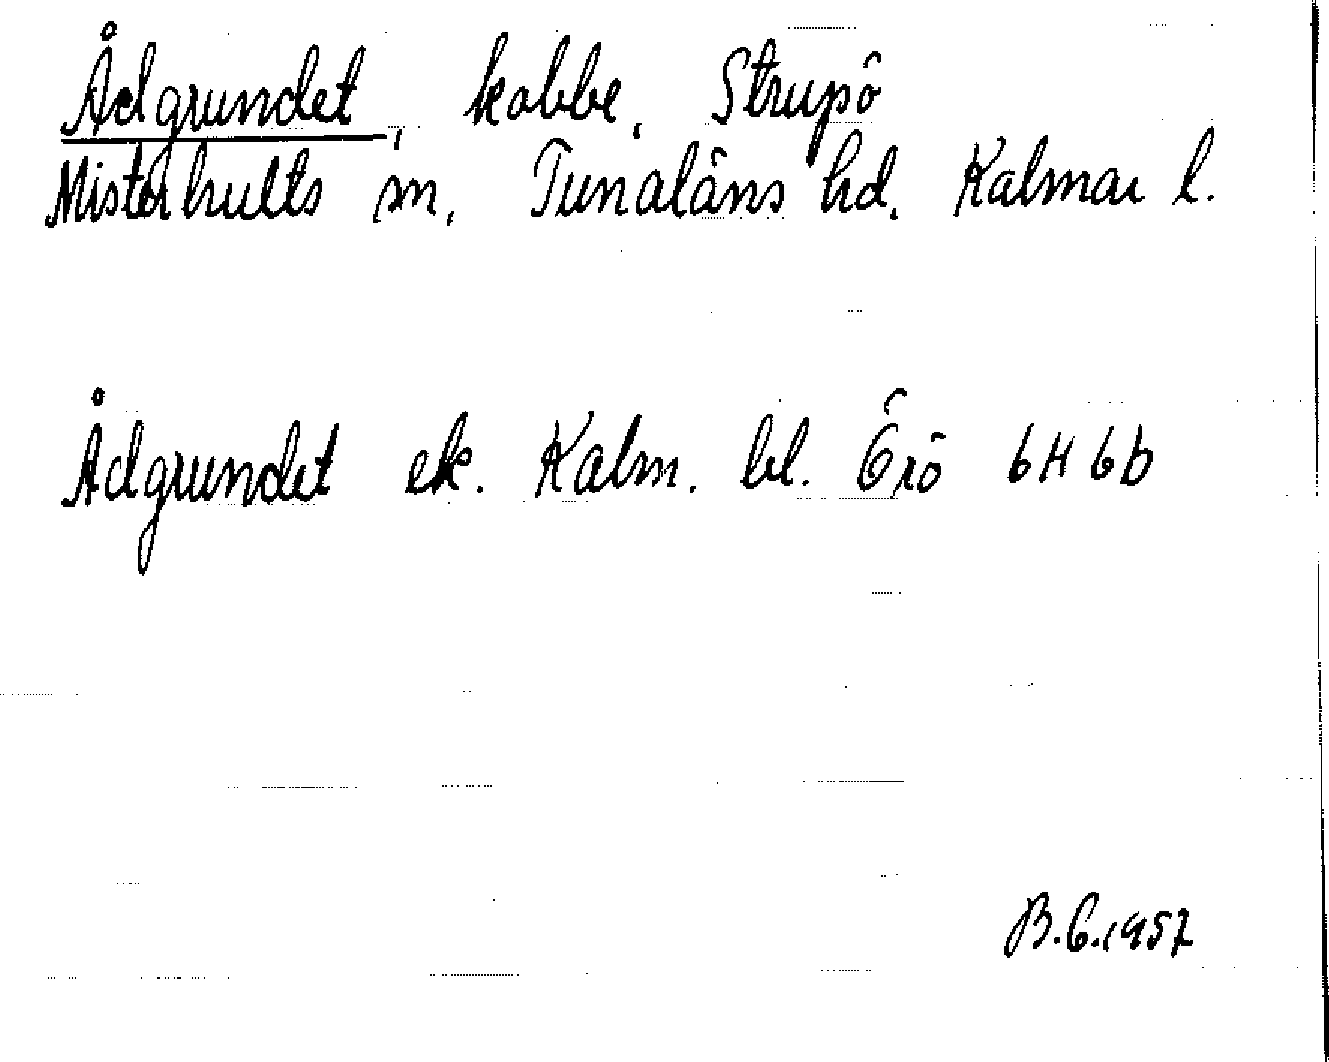 Ådgrundet, kobbe, Strupö
Misterhults sn, Tunaläns hd. Kalmar l.
Ådgrundet ek. Kalm. bl. Örö 6H 6b
B.E.1957